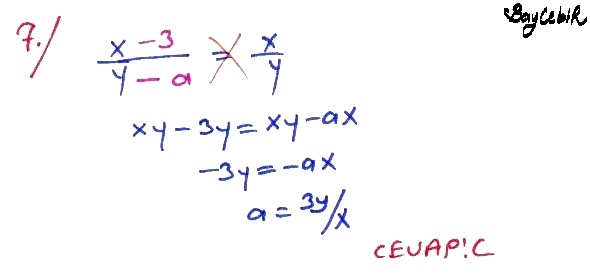 BayCebiR
7./ x - 3 / y - a = x / y
xy - 3y = xy - ax
-3y = -ax
a = 3y/x
CEVAP!C